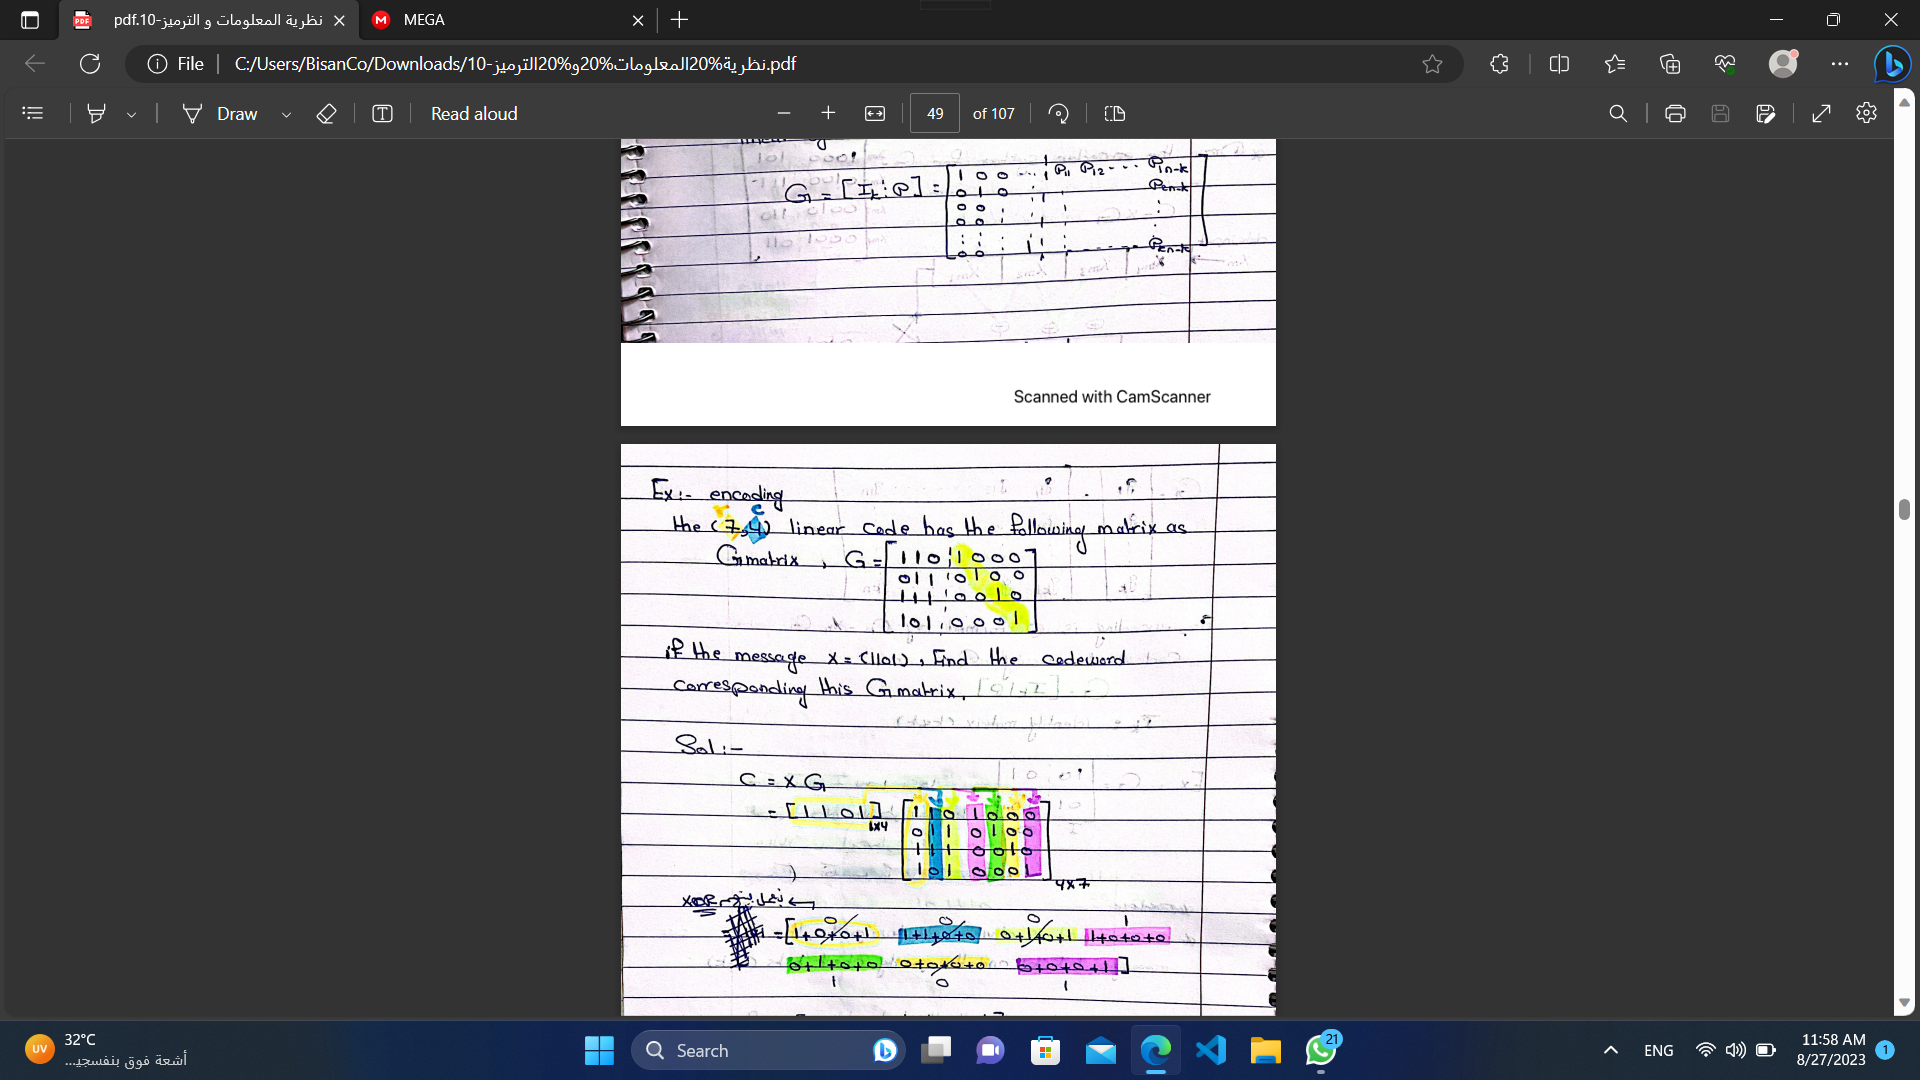 نظرية المعلومات و الترميز-10.pdf
MEGA
File
C:/Users/BisanCo/Downloads/10-نظرية%20المعلومات%20و%20الترميز.pdf
Draw
Read aloud
49
of 107
G = [Ik ⋮ P] =
1 0 0 ... P11 P12 ... P1n-k
0 1 0 P2n-k
0 0
0 0
0 0 1 Pkn-k
Scanned with CamScanner
Ex:- encoding
r c
the (7,4) linear code has the following matrix as
G matrix , G =
1 1 0 1 0 0 0
0 1 1 0 1 0 0
1 1 1 0 0 1 0
1 0 1 0 0 0 1
if the message x = (1101) , Find the codeword
corresponding this G matrix.
Sol:-
C = x G
= [1 1 0 1] 1x4
1 1 0 1 0 0 0
0 1 1 0 1 0 0
1 1 1 0 0 1 0
1 0 1 0 0 0 1
4x7
XOR
0 0 0 1
= [1+0+0+1 1+1+0+0 0+1+0+1 1+0+0+0
0+1+0+0 0+0+0+0 0+0+0+1]
1 0 1
UV
32°C
أشعة فوق بنفسجي...
Search
21
ENG
11:58 AM
8/27/2023
1